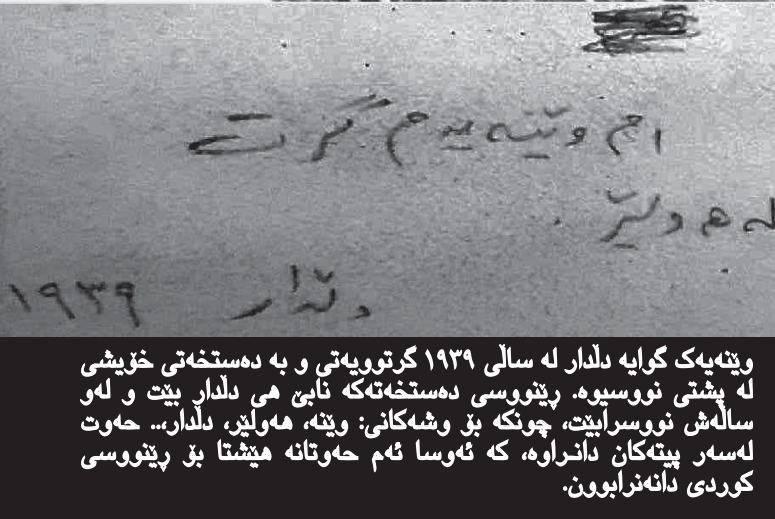 ام وێنە یە م گرت
لە هە ولێر .
دڵدار ١٩٣٩
وێنەیەک گوایە دڵدار لە ساڵی ١٩٣٩ گرتوویەتی و بە دەستخەتی خۆیشی
لە پشتی نووسیوە. ڕێنووسی دەستخەتەکە نابێ هی دڵدار بێت و لەو
ساڵەش نووسرابێت، چونکە بۆ وشەکانی: وێنە، هەولێر، دڵدار،.. حەوت
لەسەر پیتەکان دانراوە، کە ئەوسا ئەم حەوتانە هێشتا بۆ ڕێنووسی
کوردی دانەنرابوون.